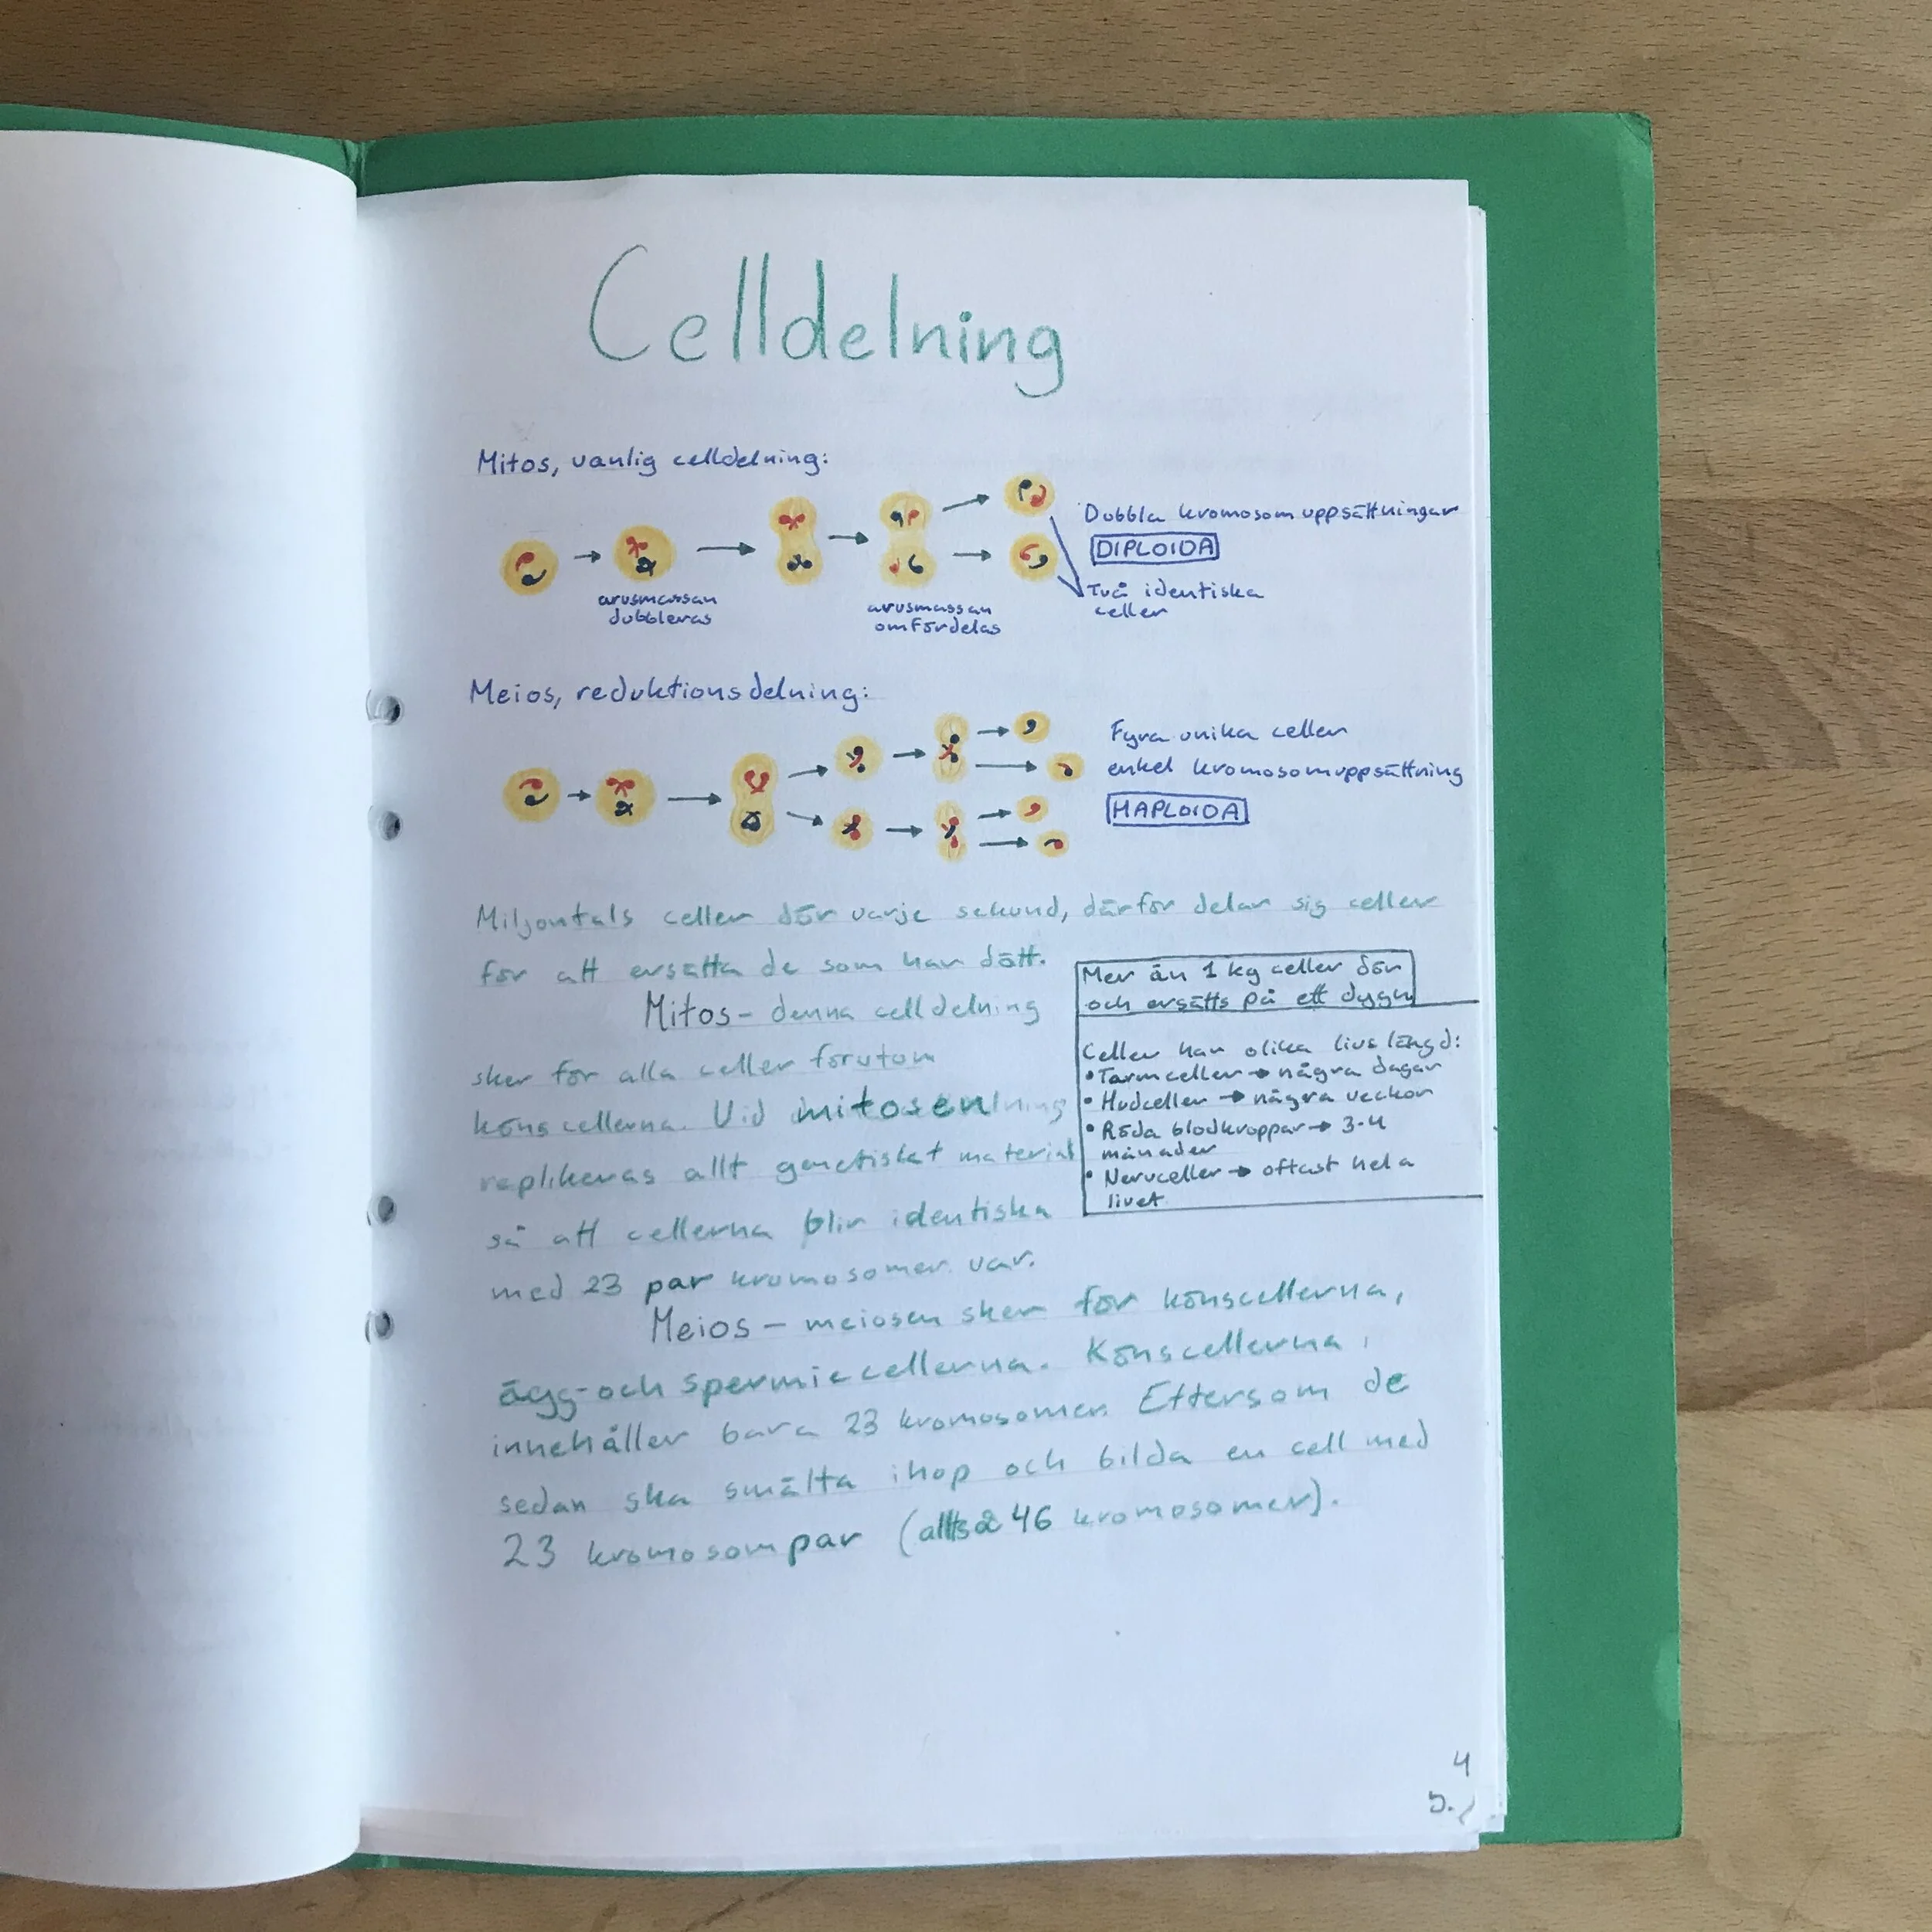 Celldelning
Mitos, vanlig celldelning:
arvsmassan
dubbleras
arvsmassan
omfördelas
Dubbla kromosomuppsättningar
DIPLOIDA
Två identiska
celler
Meios, reduktionsdelning:
Fyra unika celler
enkel kromosomuppsättning
HAPLOIDA
Miljontals celler dör varje sekund, därför delar sig celler
för att ersätta de som har dött.
Mitos - denna celldelning
sker för alla celler förutom
könscellerna. Vid mitosen
replikeras allt genetiskt material
så att cellerna blir identiska
med 23 par kromosomer var.
Mer än 1 kg celler dör
och ersätts på ett dygn
Celler har olika livslängd:
• Tarmceller → några dagar
• Hudceller → några veckor
• Röda blodkroppar → 3-4
månader
• Nervceller → oftast hela
livet
Meios - meiosen sker för könscellerna,
ägg- och spermiecellerna. Könscellerna
innehåller bara 23 kromosomer. Eftersom de
sedan ska smälta ihop och bilda en cell med
23 kromosompar (alltså 46 kromosomer).
4
5.